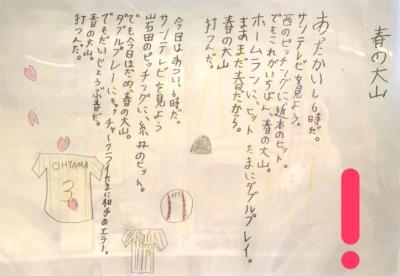 春の大山
あったかい、6時だ。
サンテレビを見よう。
西のピッチングに、近本のヒット。
でもこれがいちばん、春の大山。
ホームランに、ヒット たまにダブルプレイ。
まあまだ春だから。
春の大山
打つんだ。
今日はあつい、6時だ。
サンテレビを見よう
岩田のピッチングに、糸井のヒット。
でも今日はだめ、春の大山。
ダブルプレーに、キャッチャーフライたまに相手のエラー。
でもだいじょうぶ春だ。
春の大山。
打つんだ。
OHYAMA
3